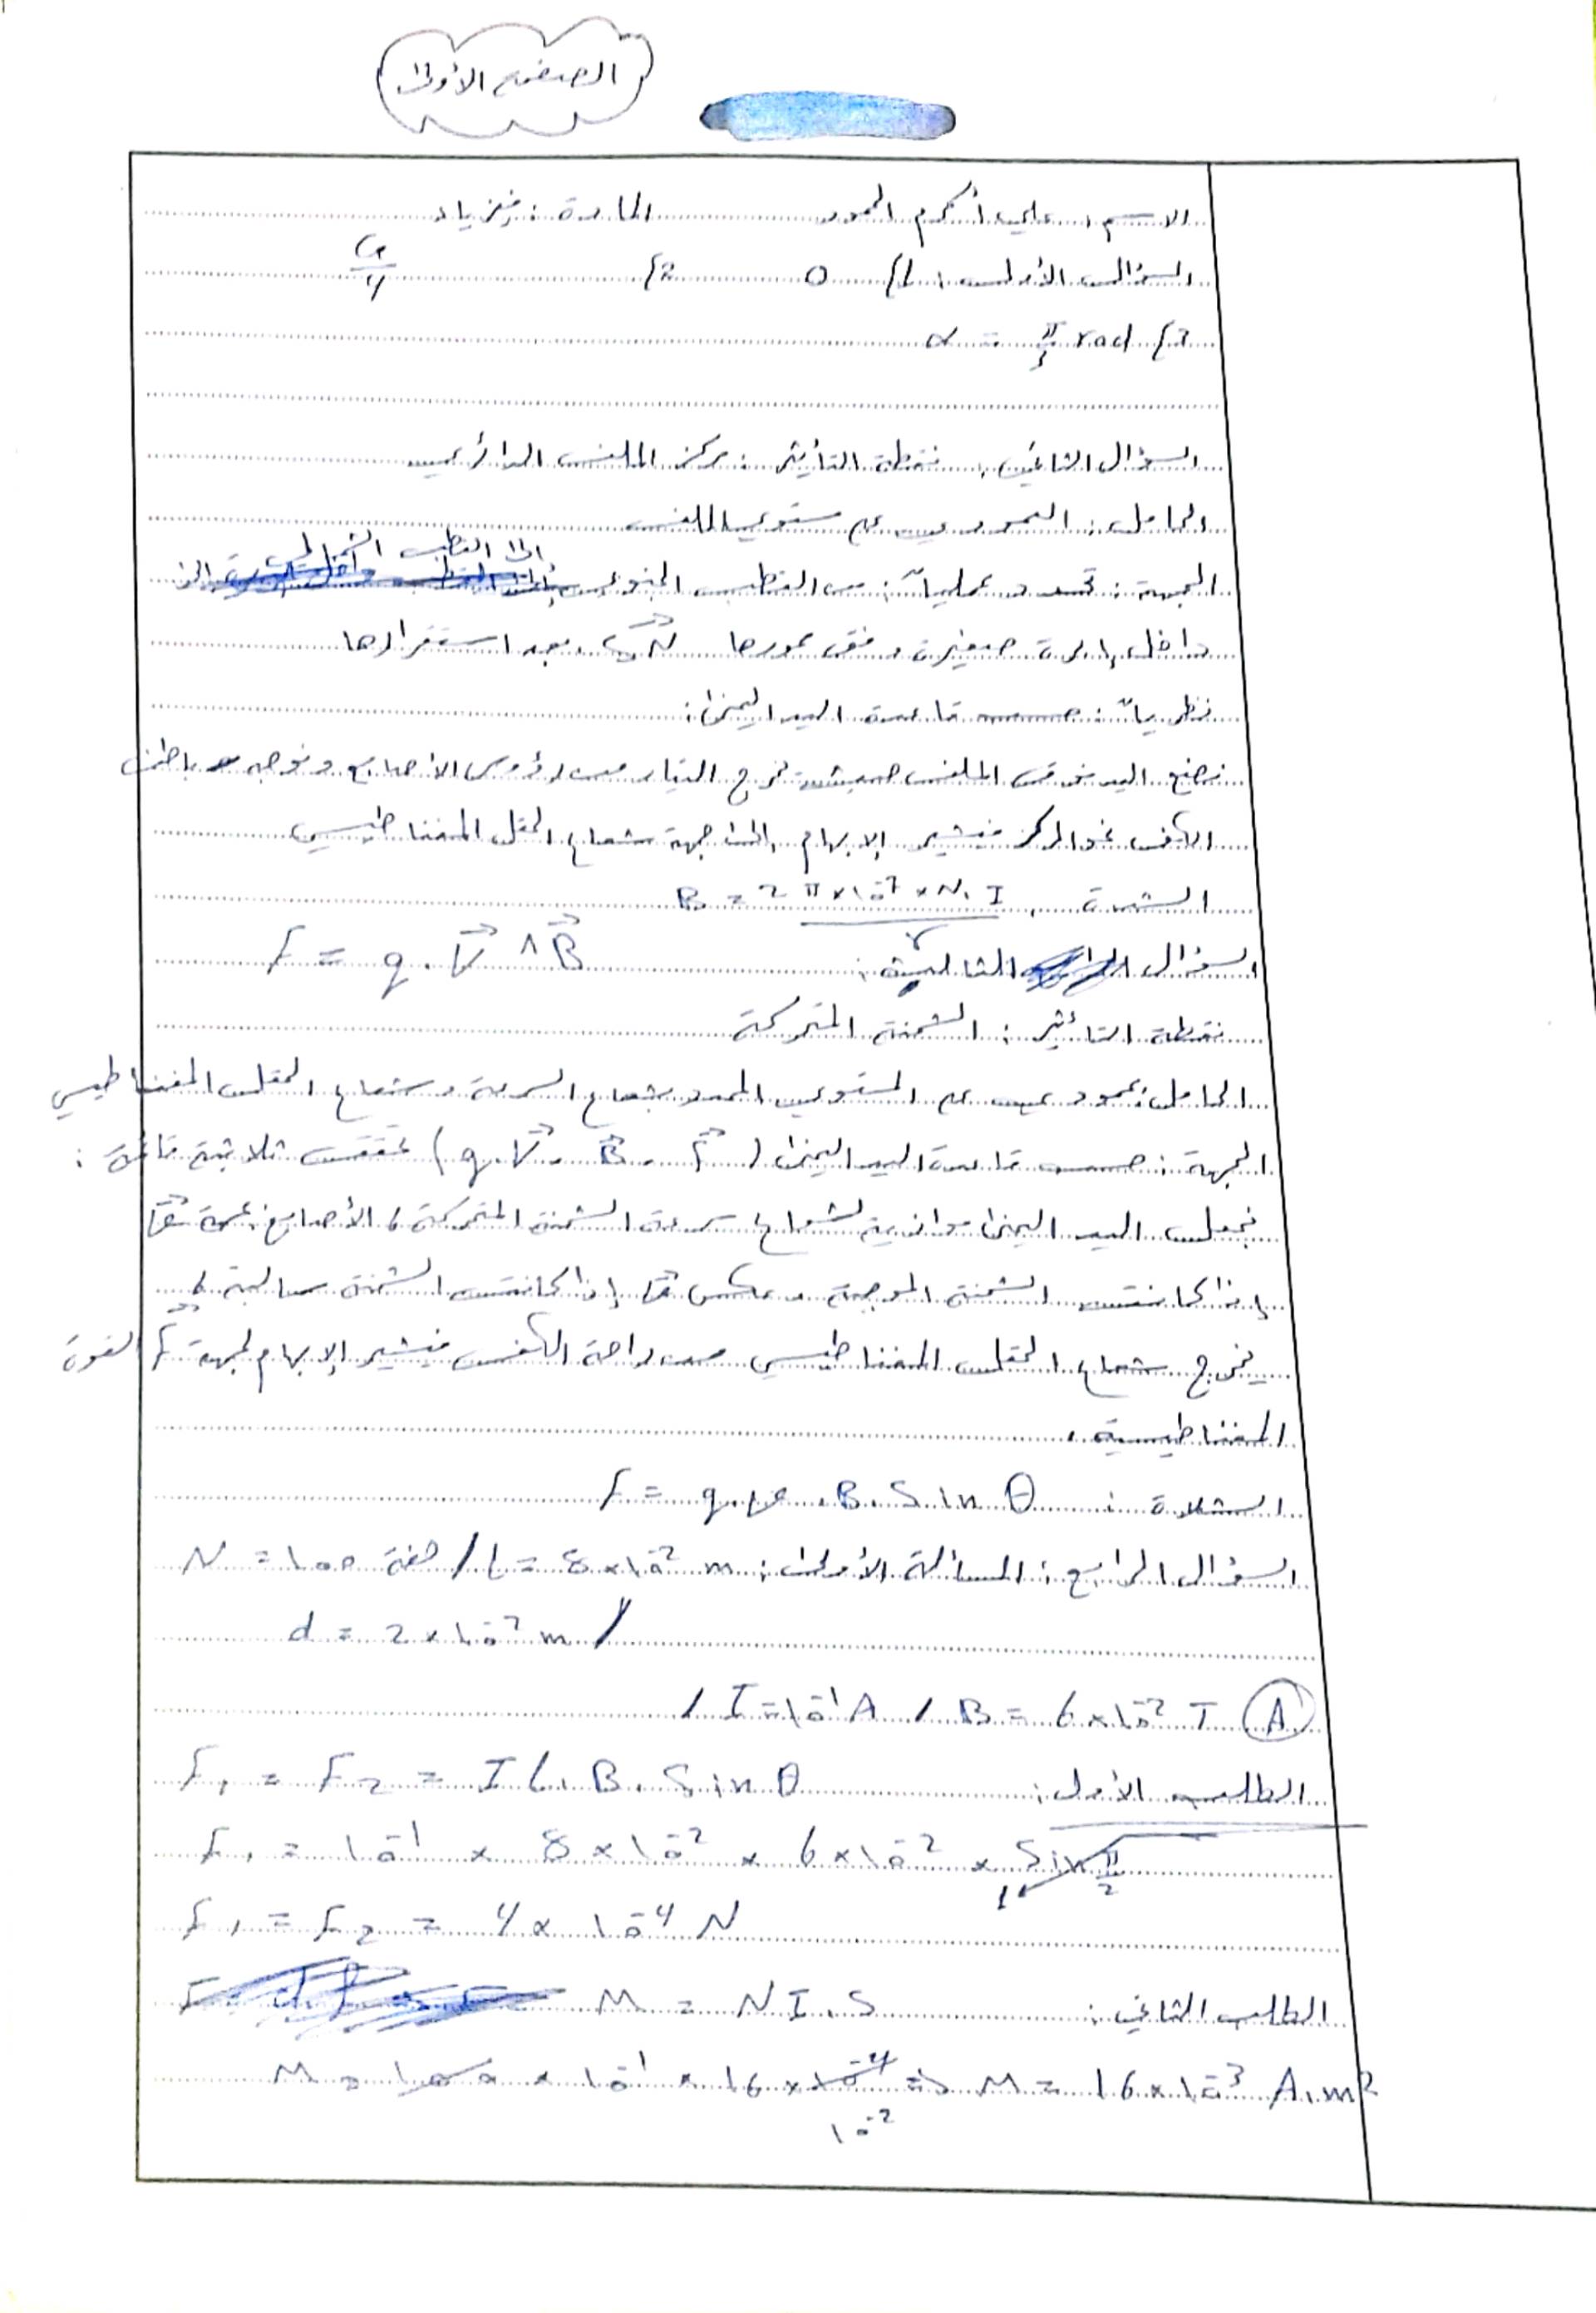 الصفحة الأولى
الاسم: علي أكرم الحمود المادة: فيزياء
السؤال الأول: 1} 0 2} G/4
3} α = π/3 rad
السؤال الثاني: نقطة التأثير: مركز الملف الدائري
الحامل: العمودي على مستوي الملف
الجهة: تحدد عملياً: من القطب الجنوبي إلى القطب الشمالي
داخل إبرة صغيرة وفق محورها بعد استقرارها
نظرياً: حسب قاعدة اليد اليمنى:
نضع اليد فوق الملف حيث يخرج التيار من رؤوس الأصابع ونوجه باطن
الكف نحو المركز فيشير الإبهام إلى جهة شعاع الحقل المغناطيسي
الشدة: B = 2π×10⁻⁷ × N.I / r
السؤال الثالث: F = q.V⃗ ∧ B⃗
نقطة التأثير: الشحنة المتحركة
الحامل: عمودي على المستوي المحدد بشعاع السرعة وشعاع الحقل المغناطيسي
الجهة: حسب قاعدة اليد اليمنى (q.V⃗ . B⃗ . F⃗) تحقق ثلاثية قائمة:
نجعل اليد اليمنى موازية لشعاع سرعة الشحنة المتحركة، الأصابع بجهة v⃗
إذا كانت الشحنة الموجبة وبعكس v⃗ إذا كانت الشحنة سالبة،
يخرج شعاع الحقل المغناطيسي من راحة الكف فيشير الإبهام لجهة F⃗ القوة
المغناطيسية.
الشدة: F = q.v.B.Sin θ
السؤال الرابع: المسألة الأولى: L = 8×10⁻² m / حلقة N = 100
d = 2×10⁻² m /
A B = 6×10⁻² T / I = 10⁻¹ A /
الطلب الأول: F₁ = F₂ = I L. B. Sin θ
F₁ = 10⁻¹ × 8×10⁻² × 6×10⁻² × Sin π/2 1
F₁ = F₂ = 4×10⁻⁴ N
الطلب الثاني: M = N I.S
M = 100 × 10⁻¹ × 16×10⁻⁴ ⇒ M = 16×10⁻³ A.m²
10⁻²